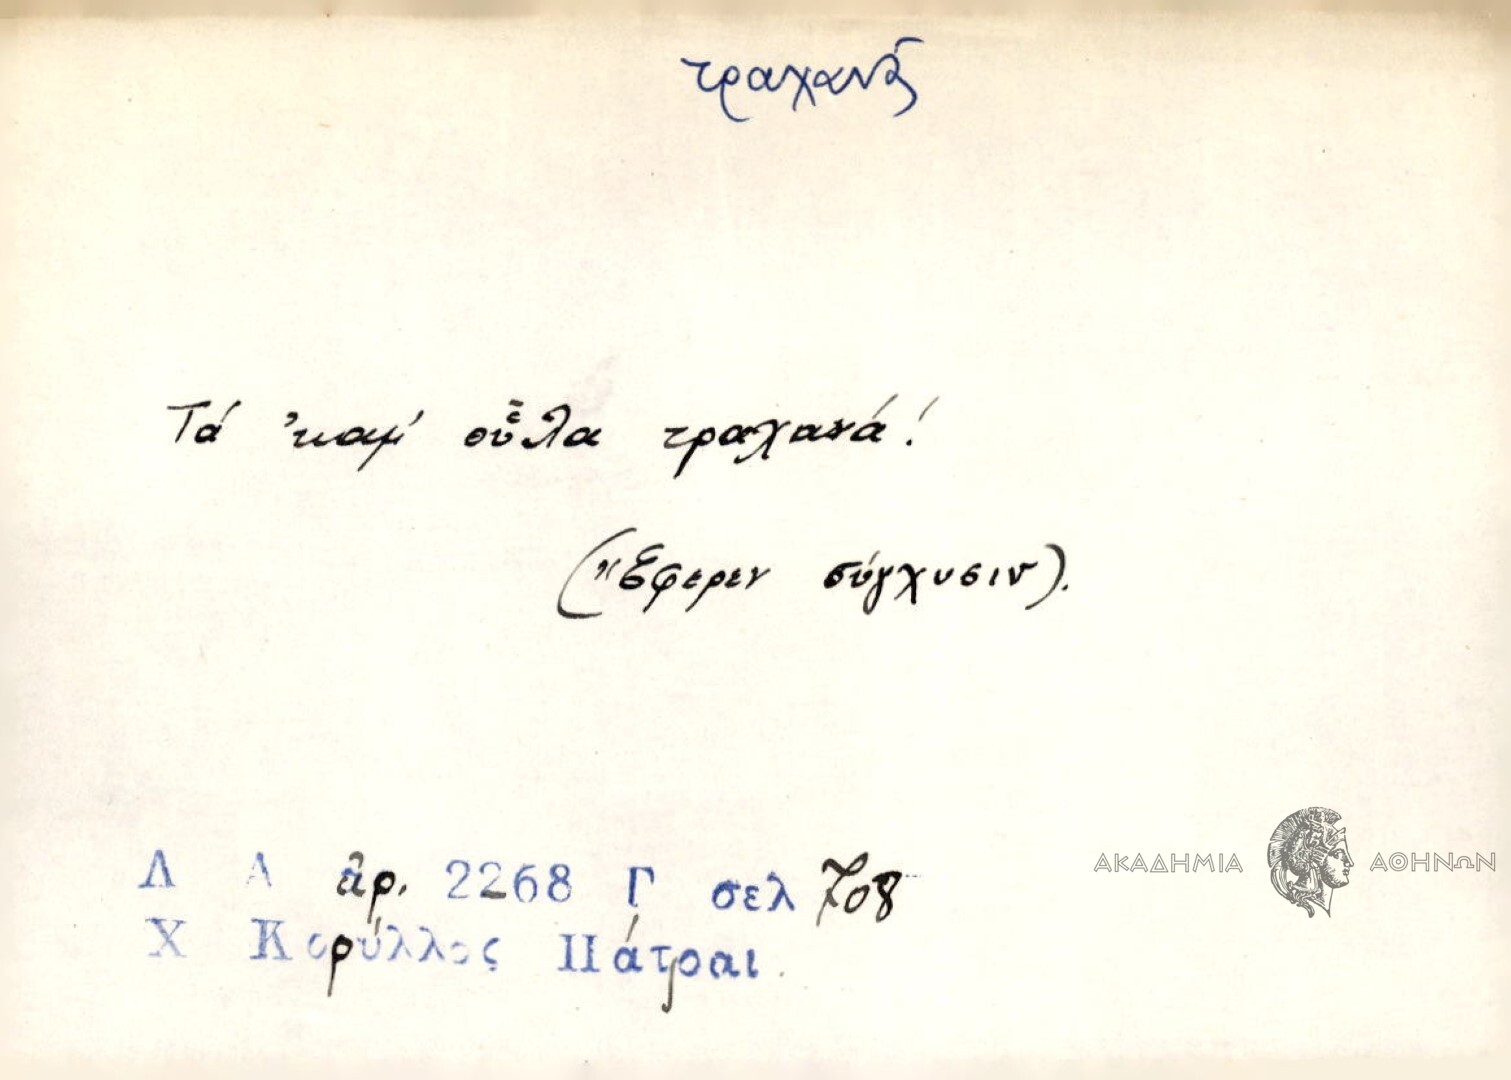 τραχανᾶς
Τά 'καμ' οὗλα τραχανά!
(Ἔφερεν σύγχυσιν).
Λ Α ἀρ. 2268 Γ σελ 708
Χ Κορύλλος Πάτραι
ΑΚΑΔΗΜΙΑ ΑΘΗΝΩΝ